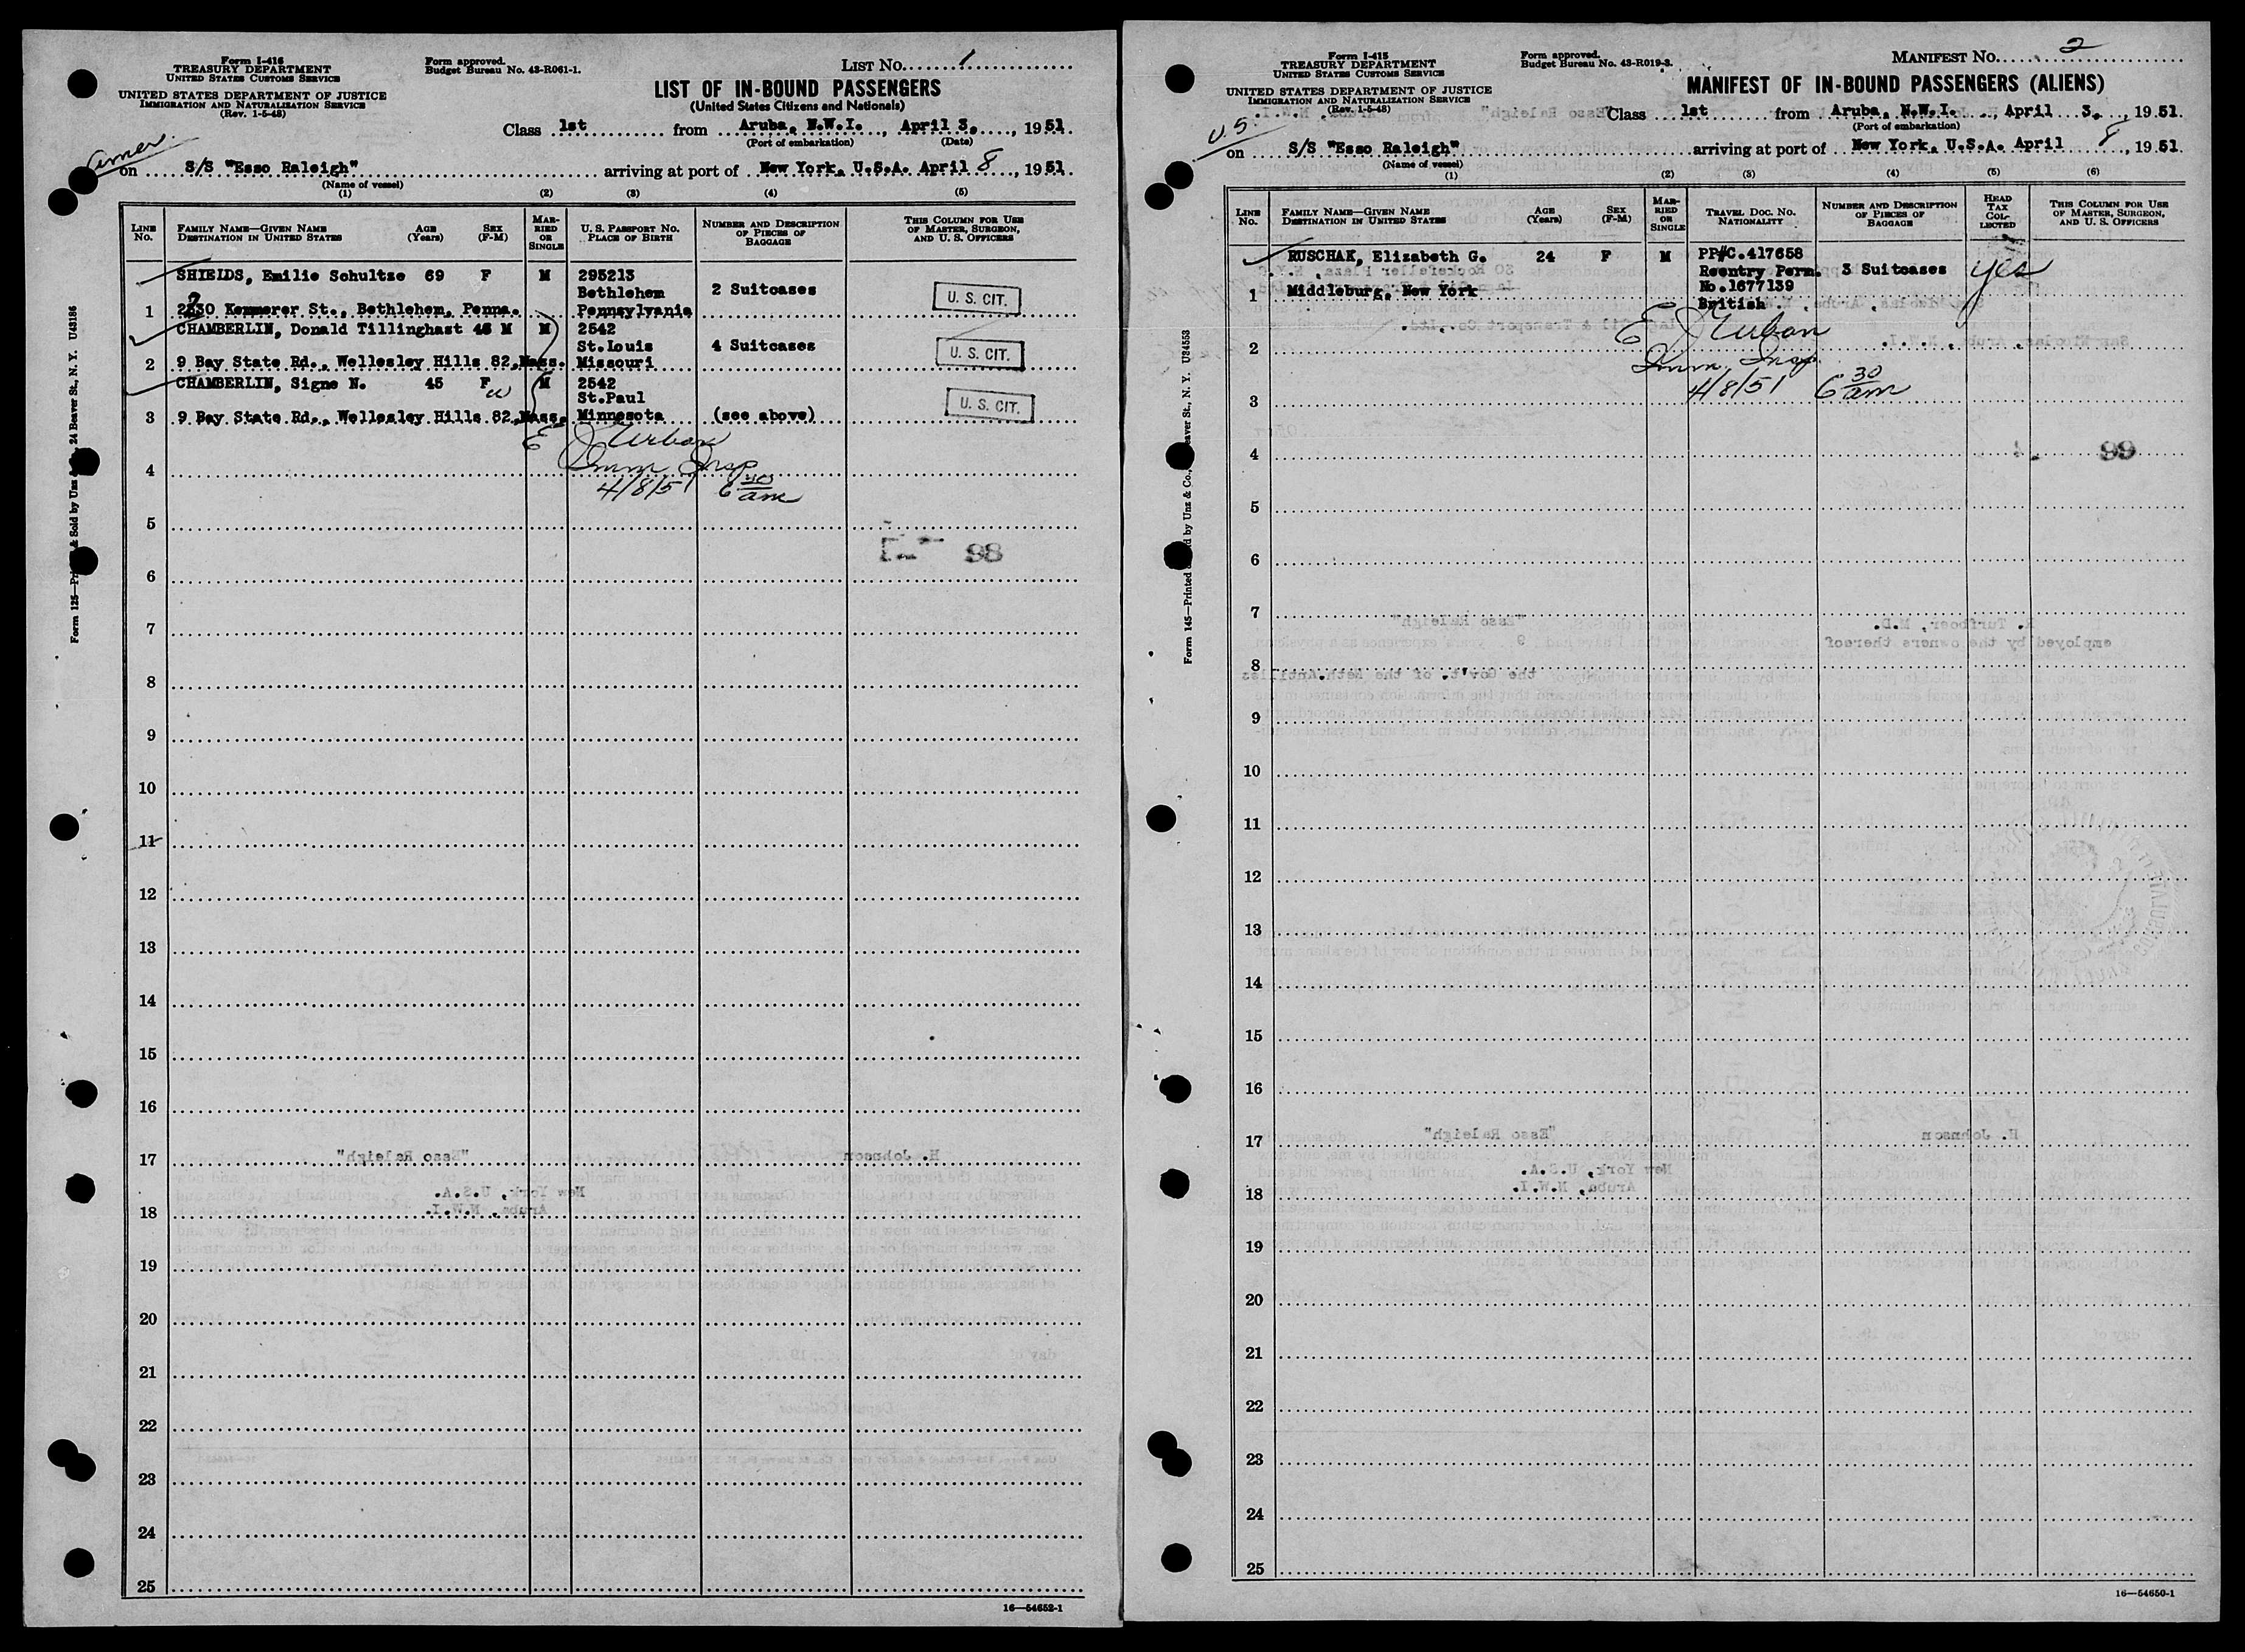 Form I-416
TREASURY DEPARTMENT
UNITED STATES CUSTOMS SERVICE
UNITED STATES DEPARTMENT OF JUSTICE
IMMIGRATION AND NATURALIZATION SERVICE
(Rev. 1-5-48)
Form approved.
Budget Bureau No. 43-R061-1.
LIST No. 1
LIST OF IN-BOUND PASSENGERS
(United States Citizens and Nationals)
Class 1st from Aruba, N.W.I., April 3, 1951.
(Port of embarkation) (Date)
Amer.
on S/S "Esso Raleigh" arriving at port of New York, U.S.A. April 8, 1951.
(Name of vessel)
(1) (2) (3) (4) (5)
LINE No. FAMILY NAME—GIVEN NAME DESTINATION IN UNITED STATES AGE (Years) SEX (F-M) MARRIED OR SINGLE U. S. PASSPORT NO. PLACE OF BIRTH NUMBER AND DESCRIPTION OF PIECES OF BAGGAGE THIS COLUMN FOR USE OF MASTER, SURGEON, AND U. S. OFFICERS
SHIELDS, Emilie Schultze 69 F M 295213
Bethlehem 2 Suitcases U. S. CIT.
1 2330 Kemmerer St., Bethlehem, Penna. Pennsylvania
CHAMBERLIN, Donald Tillinghast 46 M M 2542
St.Louis 4 Suitcases U. S. CIT.
2 9 Bay State Rd., Wellesley Hills 82, Mass. Missouri
CHAMBERLIN, Signe N. 45 F M 2542
w St.Paul U. S. CIT.
3 9 Bay State Rd., Wellesley Hills 82, Mass. Minnesota (see above)
E J Urban
4 Imm Insp
4/8/51 6 30 am
5
98
6
7
8
9
10
11
12
13
14
15
16
17
18
19
20
21
22
23
24
25
16—54652-1
24 Beaver St., N. Y. U43186
Form I-415
TREASURY DEPARTMENT
UNITED STATES CUSTOMS SERVICE
UNITED STATES DEPARTMENT OF JUSTICE
IMMIGRATION AND NATURALIZATION SERVICE
(Rev. 1-5-48)
Form approved.
Budget Bureau No. 43-R019-3.
MANIFEST No. 2
MANIFEST OF IN-BOUND PASSENGERS (ALIENS)
Class 1st from Aruba, N.W.I., April 3, 1951.
(Port of embarkation)
U.S.
on S/S "Esso Raleigh" arriving at port of New York, U.S.A. April 8, 1951.
(Name of vessel)
(1) (2) (3) (4) (5) (6)
LINE No. FAMILY NAME—GIVEN NAME DESTINATION IN UNITED STATES AGE (Years) SEX (F-M) MARRIED OR SINGLE TRAVEL DOC. NO. NATIONALITY NUMBER AND DESCRIPTION OF PIECES OF BAGGAGE HEAD TAX COLLECTED THIS COLUMN FOR USE OF MASTER, SURGEON, AND U. S. OFFICERS
RUSCHAK, Elizabeth G. 24 F M PP#C.417658
Reentry Perm. 3 Suitcases yes
1 Middleburg, New York No.1677139
British
E J Urban
2 Imm. Insp.
4/8/51 6 30 am
3
4 99
5
6
7
8
9
10
11
12
13
14
15
16
17
18
19
20
21
22
23
24
25
16—54650-1